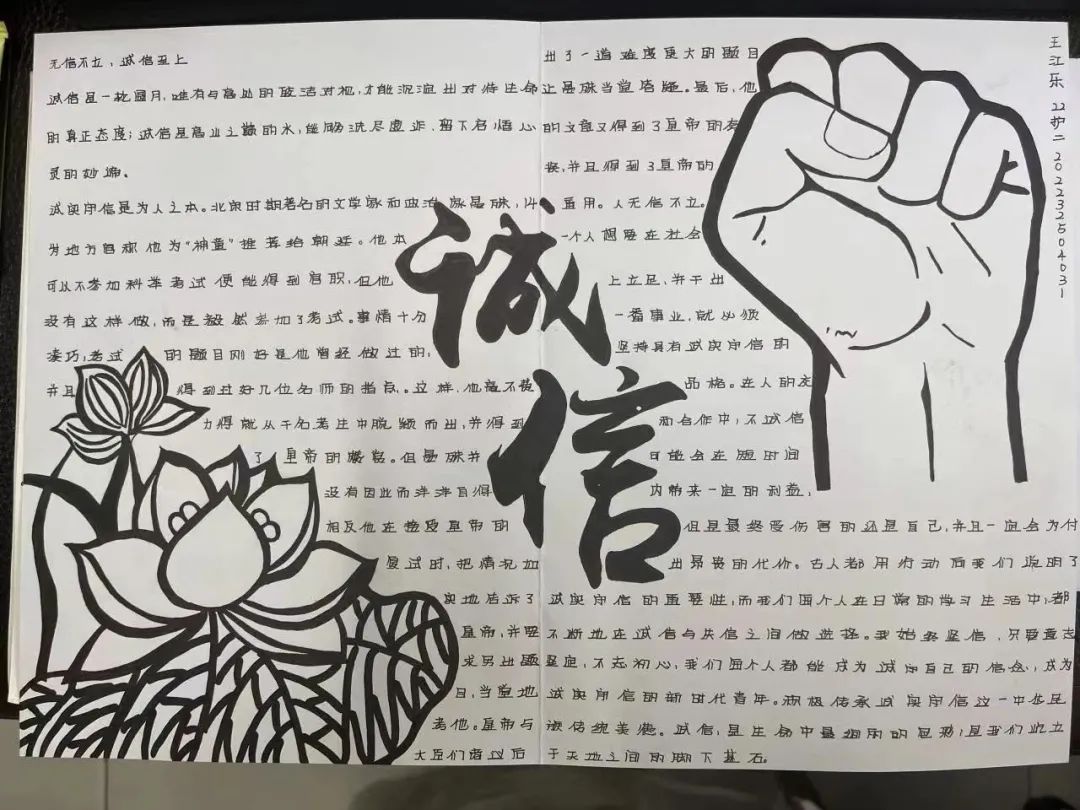 无信不立,诚信至上
诚信是一轮圆月,唯有与高处的皎洁对视,才能沉淀出对待生命
的真正态度;诚信是高山之巅的水,能够洗尽虚诈,留下名悟心
灵的妙谛。
诚实守信是为人之本。北宋时期著名的文学家和政治家晏殊,14
为地方官称他为"神童"推荐给朝廷。他本
可以不参加科举考试便能得到官职,但他
没有这样做,而是毅然参加了考试。事情十分
凑巧,考试的题目刚好是他曾经做过的,
并且得到过好几位名师的指点。这样,他毫不费
力得就从千名考生中脱颖而出,并得到
了皇帝的赞赏。但晏殊并
没有因此而洋洋自得
相反他在接受皇帝的
复试时,把情况如
实地告诉了
皇帝,并要
求另出题
目,当堂地
考他。皇帝与
大臣们商议后
出了一道难度更大的题目
让晏殊当堂答题。最后,他
的文章又得到了皇帝的
奖,并且得到了皇帝的
重用。人无信不立。
一个人想要在社会
上立足,并干出
一番事业,就必须
坚持具有诚实守信的
品格。在人的交
和合作中,不诚信
可能会在短时间
内带来一定的利益,
但是最终受伤害的还是自己,并且一定会为付
出昂贵的代价。古人都用行动向我们说明了
诚实守信的重要性,而我们每个人在日常的学习生活中,都
不断地在诚信与失信之间做选择。我始终坚信,只要意志
坚定,不忘初心,我们每个人都能成为诚守自己的信念,成为
诚实守信的新时代青年。积极传承诚实守信这一中华民
族传统美德。诚信,是生命中最绚丽的色彩;是我们屹立
于天地之间的脚下基石。
诚
信
王江乐 22护二 2022232504031